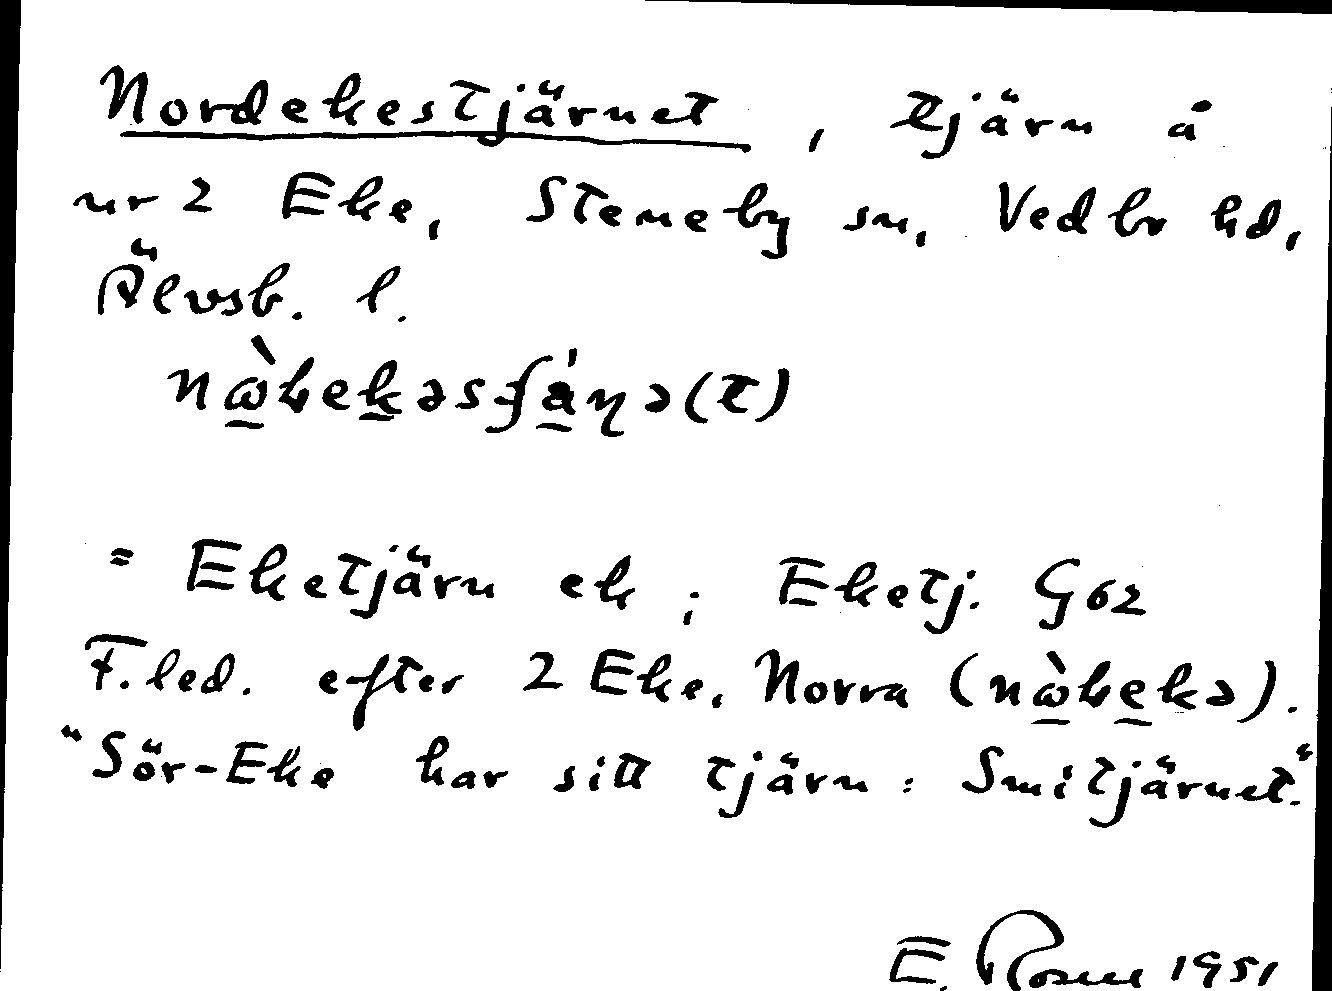 Nordekestjärnet, tjärn å
nr 2 Eke, Steneby sn, Vedbo hd,
Älvsb. l.
= Eketjärn ek; Eketj. G62
F.led. efter 2 Eke, Norra
"Sör-Eke har sitt tjärn: Smitjärnet."
E. Rosell 1951